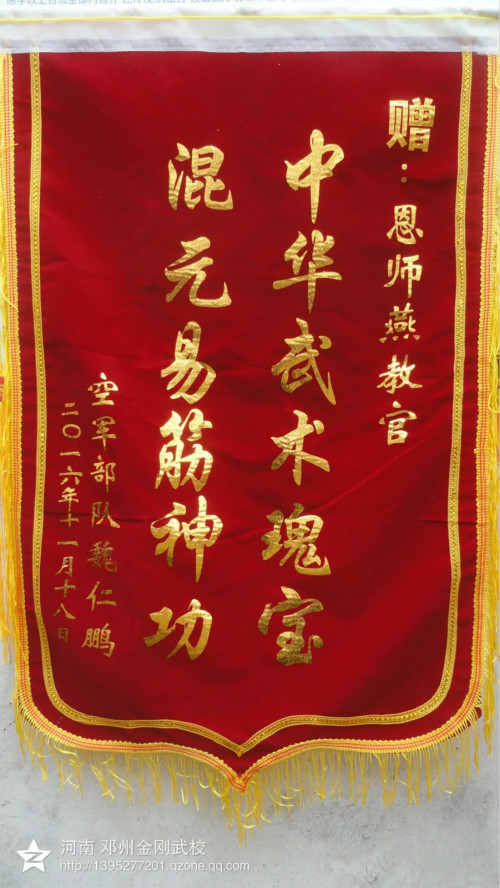 赠：恩师燕教官
中华武术瑰宝
混元易筋神功
空军部队魏仁鹏
二〇一六年十一月十八日
河南 邓州金刚武校
http://1395277201.qzone.qq.com